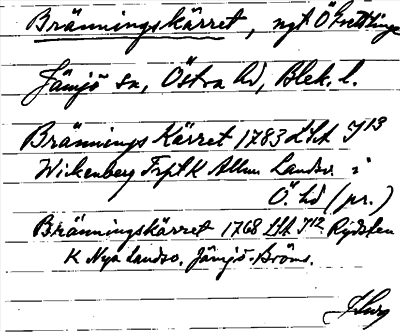 Bränningskärret, nyt Ökvettinge
Jämjö sn, Östra hd, Blek. l.
Brännings Kärret 1783 LSA I 13
Wickenberg Trpt K Allm. Landsv. i
Ö. hd (pr.)
Bränningskärret 1768 LSA I 12 Rydsten
K Nya Landsv. Jämjö-Bröms.